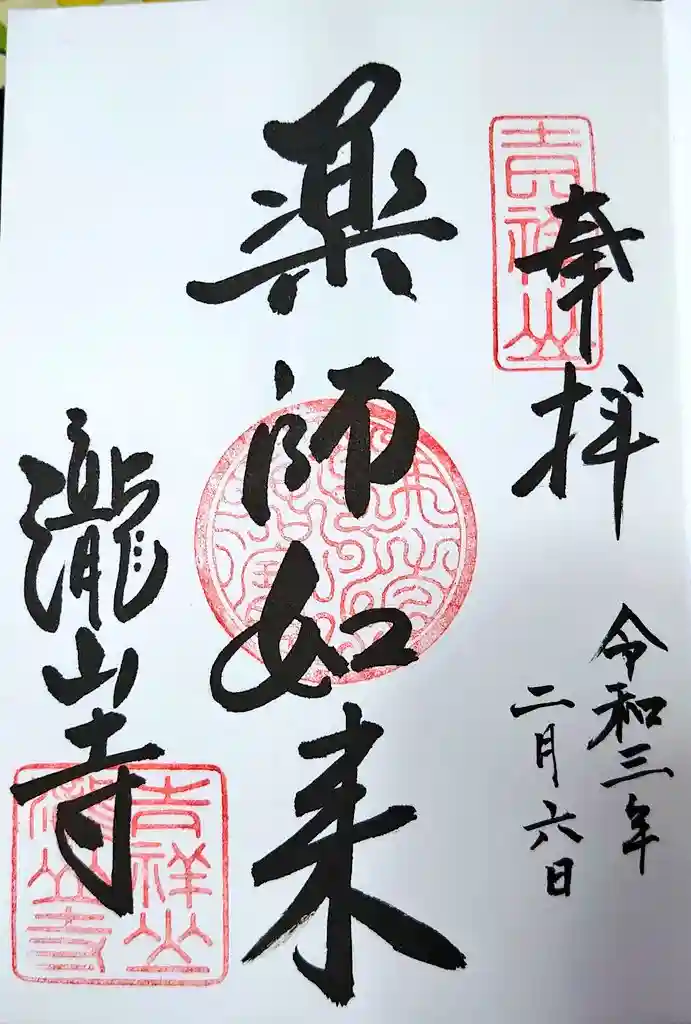 奉拝
令和三年
二月六日
薬師如来
瀧山寺
吉祥山
吉祥山
瀧山寺